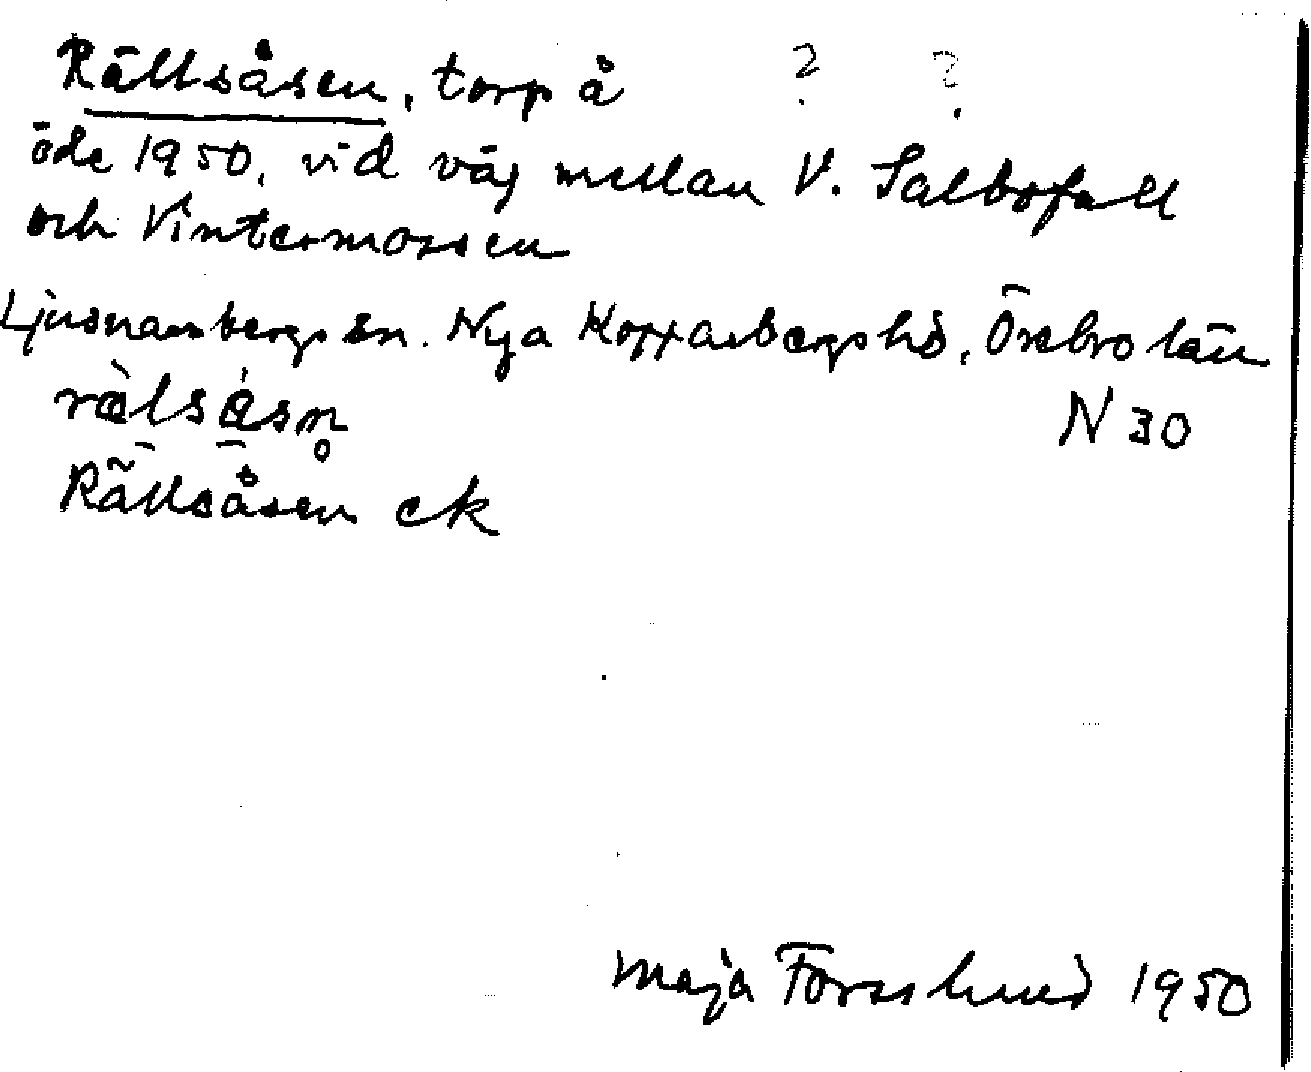 Rällsåsen, torp å ? ?
öde 1950, vid väg mellan V. Salbofall
och Vintermossen
Ljusnarsbergs sn. Nya Kopparbergs hd, Örebro län
N 30
Rällsåsen ek
Maja Forsslund 1950